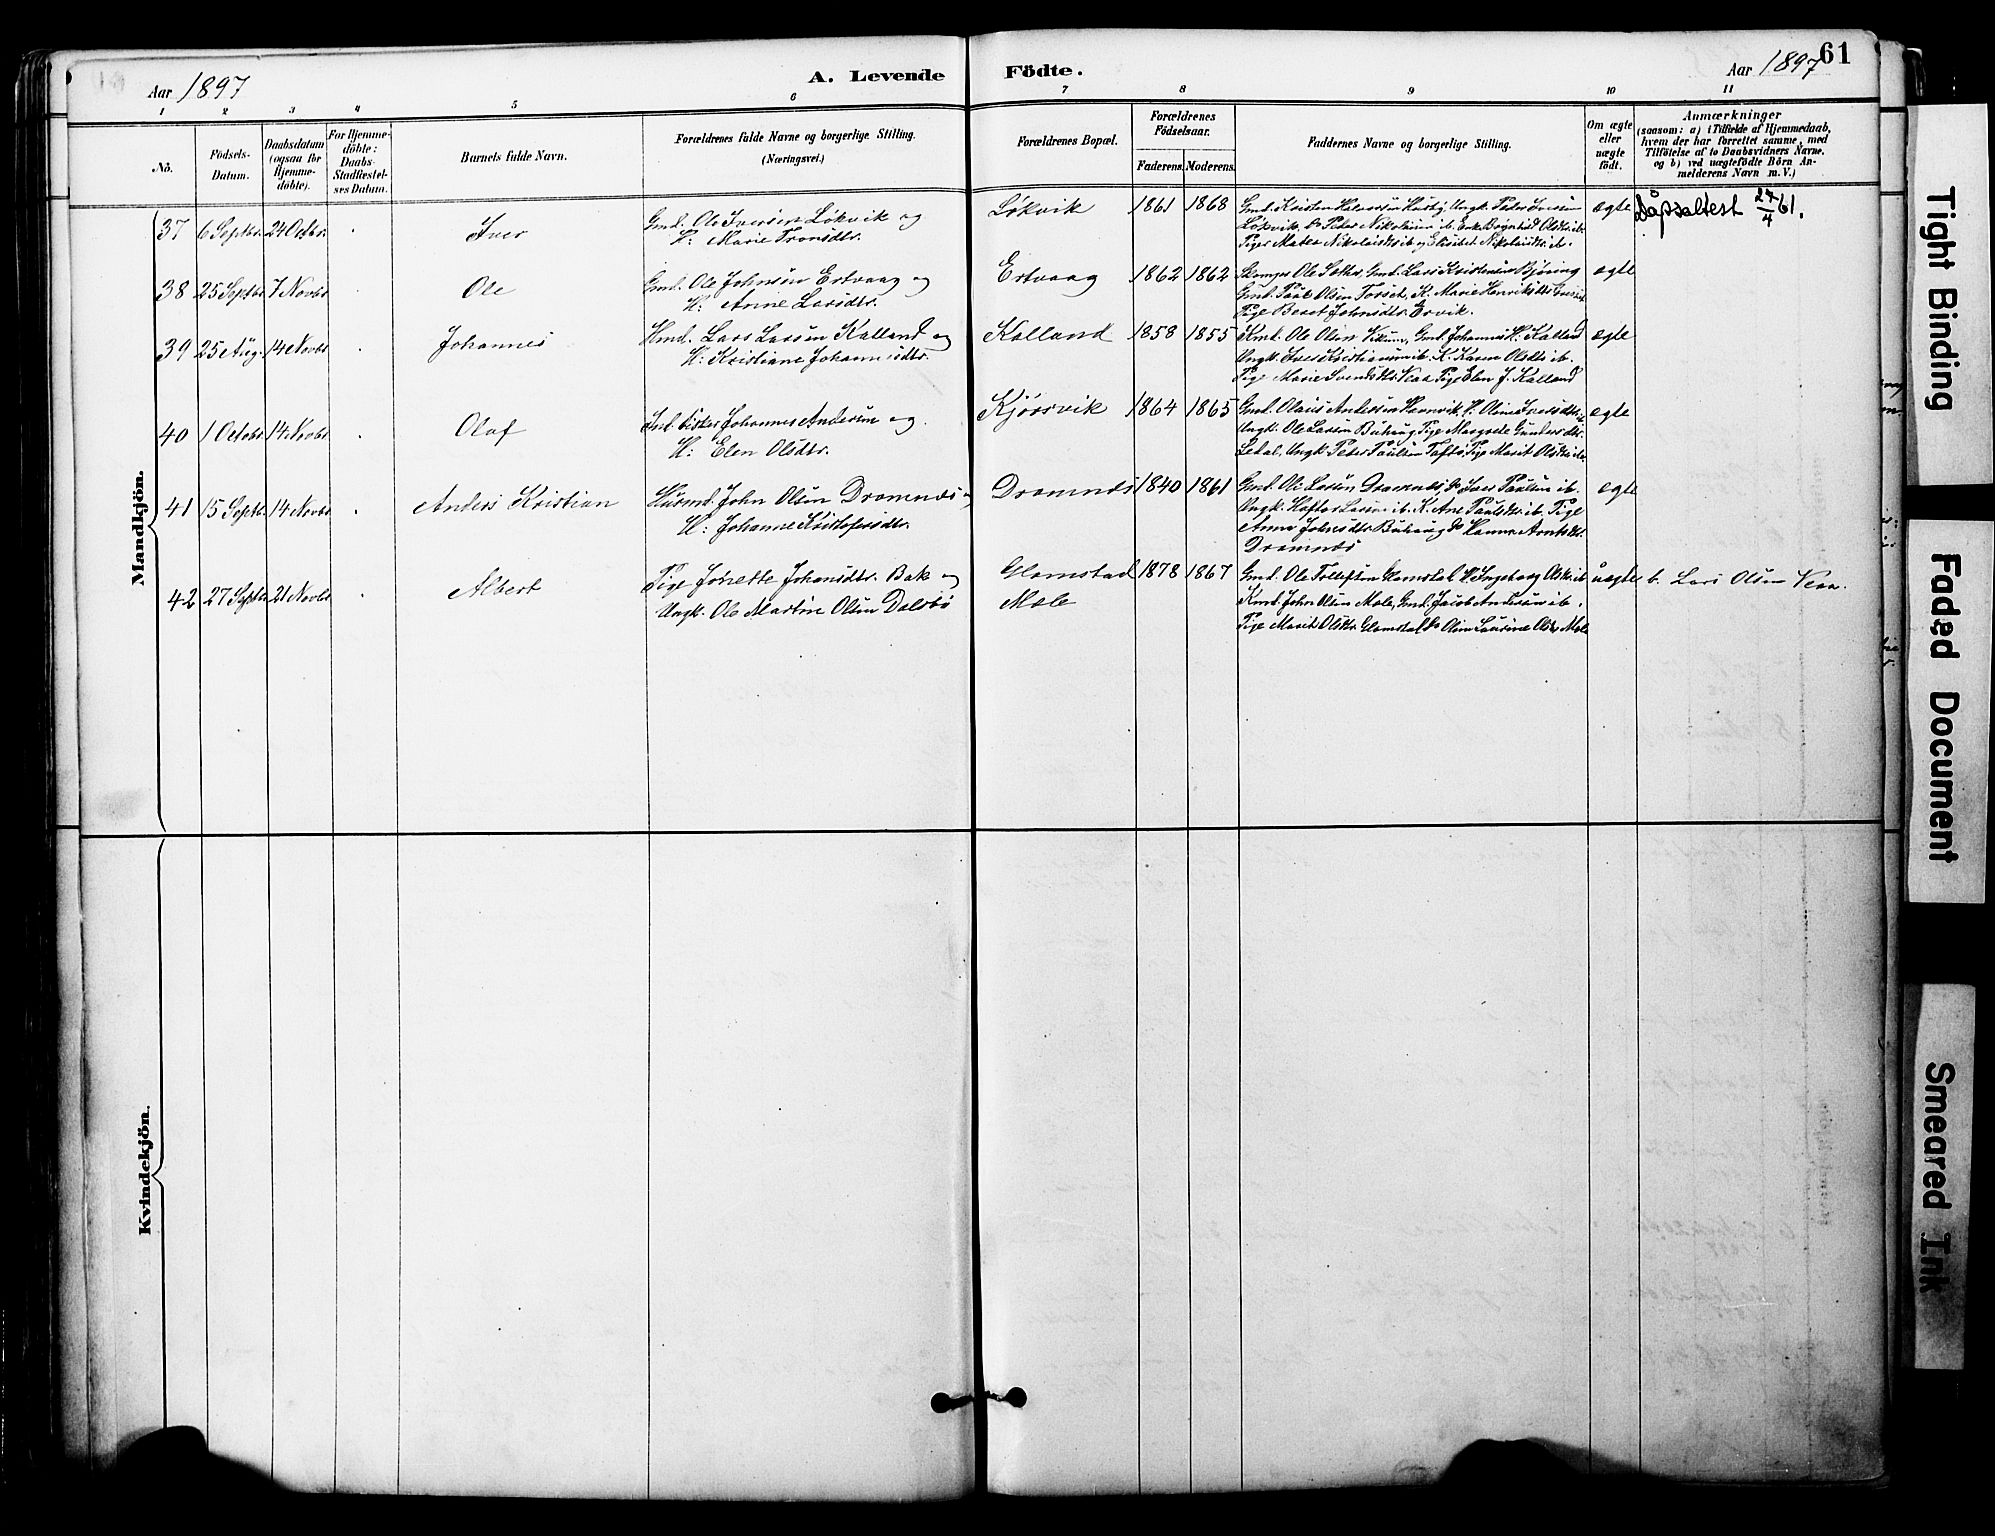 Aar 1897
A. Levende
Födte.
Aar 1897
61
1 2 3 4 5 6 7 8 9 10 11
No.
Födsels-
Datum.
Daabsdatum
(ogsaa for
Hjemme-
döbte).
For Hjemme-
döbte:
Daabs-
Stadfæstel-
ses Datum.
Barnets fulde Navn.
Forældrenes fulde Navne og borgerlige Stilling.
(Næringsvei.)
Forældrenes Bopæl.
Forældrenes
Födselsaar.
Faderens. Moderens.
Faddernes Navne og borgerlige Stilling.
Om ægte
eller
uægte
født.
Anmærkninger
(saasom: a) i Tilfælde af Hjemmedaab,
hvem der har forrettet samme, med
Tilföielse af to Daabsvidners Navne,
og b) ved uægtefödte Börn An-
melderens Navn m. V.)
Mandkjön.
37 6 Septbr. 24 Octbr. Iver
Gmd. Ole Iversen Løkvik og
H: Marie Tronsdtr.
Løkvik 1861 1868
Løkvik, do Peter Nikolaisen ib.
ægte Dåpsattest 27/4 61.
38 25 Septbr. 7 Novbr. Ole
Gmd. Ole Johnsen Ertvaag og
H: Anne Larsdtr.
Ertvaag 1862 1862
Gmd. Lars Kristensen Bjøring
Gmd. Paul Olsen Torset, K. Marie Henriksdtr.
Pige Beret Johnsdtr. Ervik.
ægte
39 25 Aug. 14 Novbr. Johannes
Lars Larsen Kalland og
H: Kristiane Johannesdtr.
Kalland 1858 1855
Kmd. Ole Olsen Gmd. Johannes H. Kalland
Ungk. Iver Kristiansen ib. K. Karen Olsdtr. ib.
Pige Marie Svendsdtr. Veaa Pige Elen J. Kalland
ægte
40 1 Octobr. 14 Novbr. Olaf
Johannes Andersen og
H: Elen Olsdtr.
Kjørsvik 1864 1865
Gmd. Olaus Andersen H. Oline Iversdtr.
Ungk. Ole Larsen Buhaug, Pige Margrete Gundersdtr.
Ungk. Peter Paulsen Tofte, Pige Marit Olsdtr. ib.
ægte
41 15 Septbr. 14 Novbr. Anders Kristian
Husmd. John Olsen Dromnes og
H: Johanne Kristofersdtr.
Dromnes 1840 1861
Gmd. Ole Larsen Dromnes, do Iver Paulsen ib.
Ungk. Haftor Larsen ib. K. Ane Paulsdtr. ib. Pige
Anne Johnsdtr. Buhaug
Dromnes
ægte
42 27 Septbr. 21 Novbr. Albert
Pige Jonette Johansdtr. Bak og
Ungk. Ole Martin Olsen Dalsbø
Glamstad 1878 1867
Mole
Gmd. Ole Tollefsen Glamstad, H. Ingeborg Olsdtr. ib.
Kmd. John Olsen Mole, Gmd. Jacob Andersen ib.
Pige Marit Olsdtr. Glamstad, do Oline Laurine Olsdtr. Mole
uægte b. Lars Olsen Veaa.
Kvindekjön.
Tight Binding
Faded Document
Smeared Ink